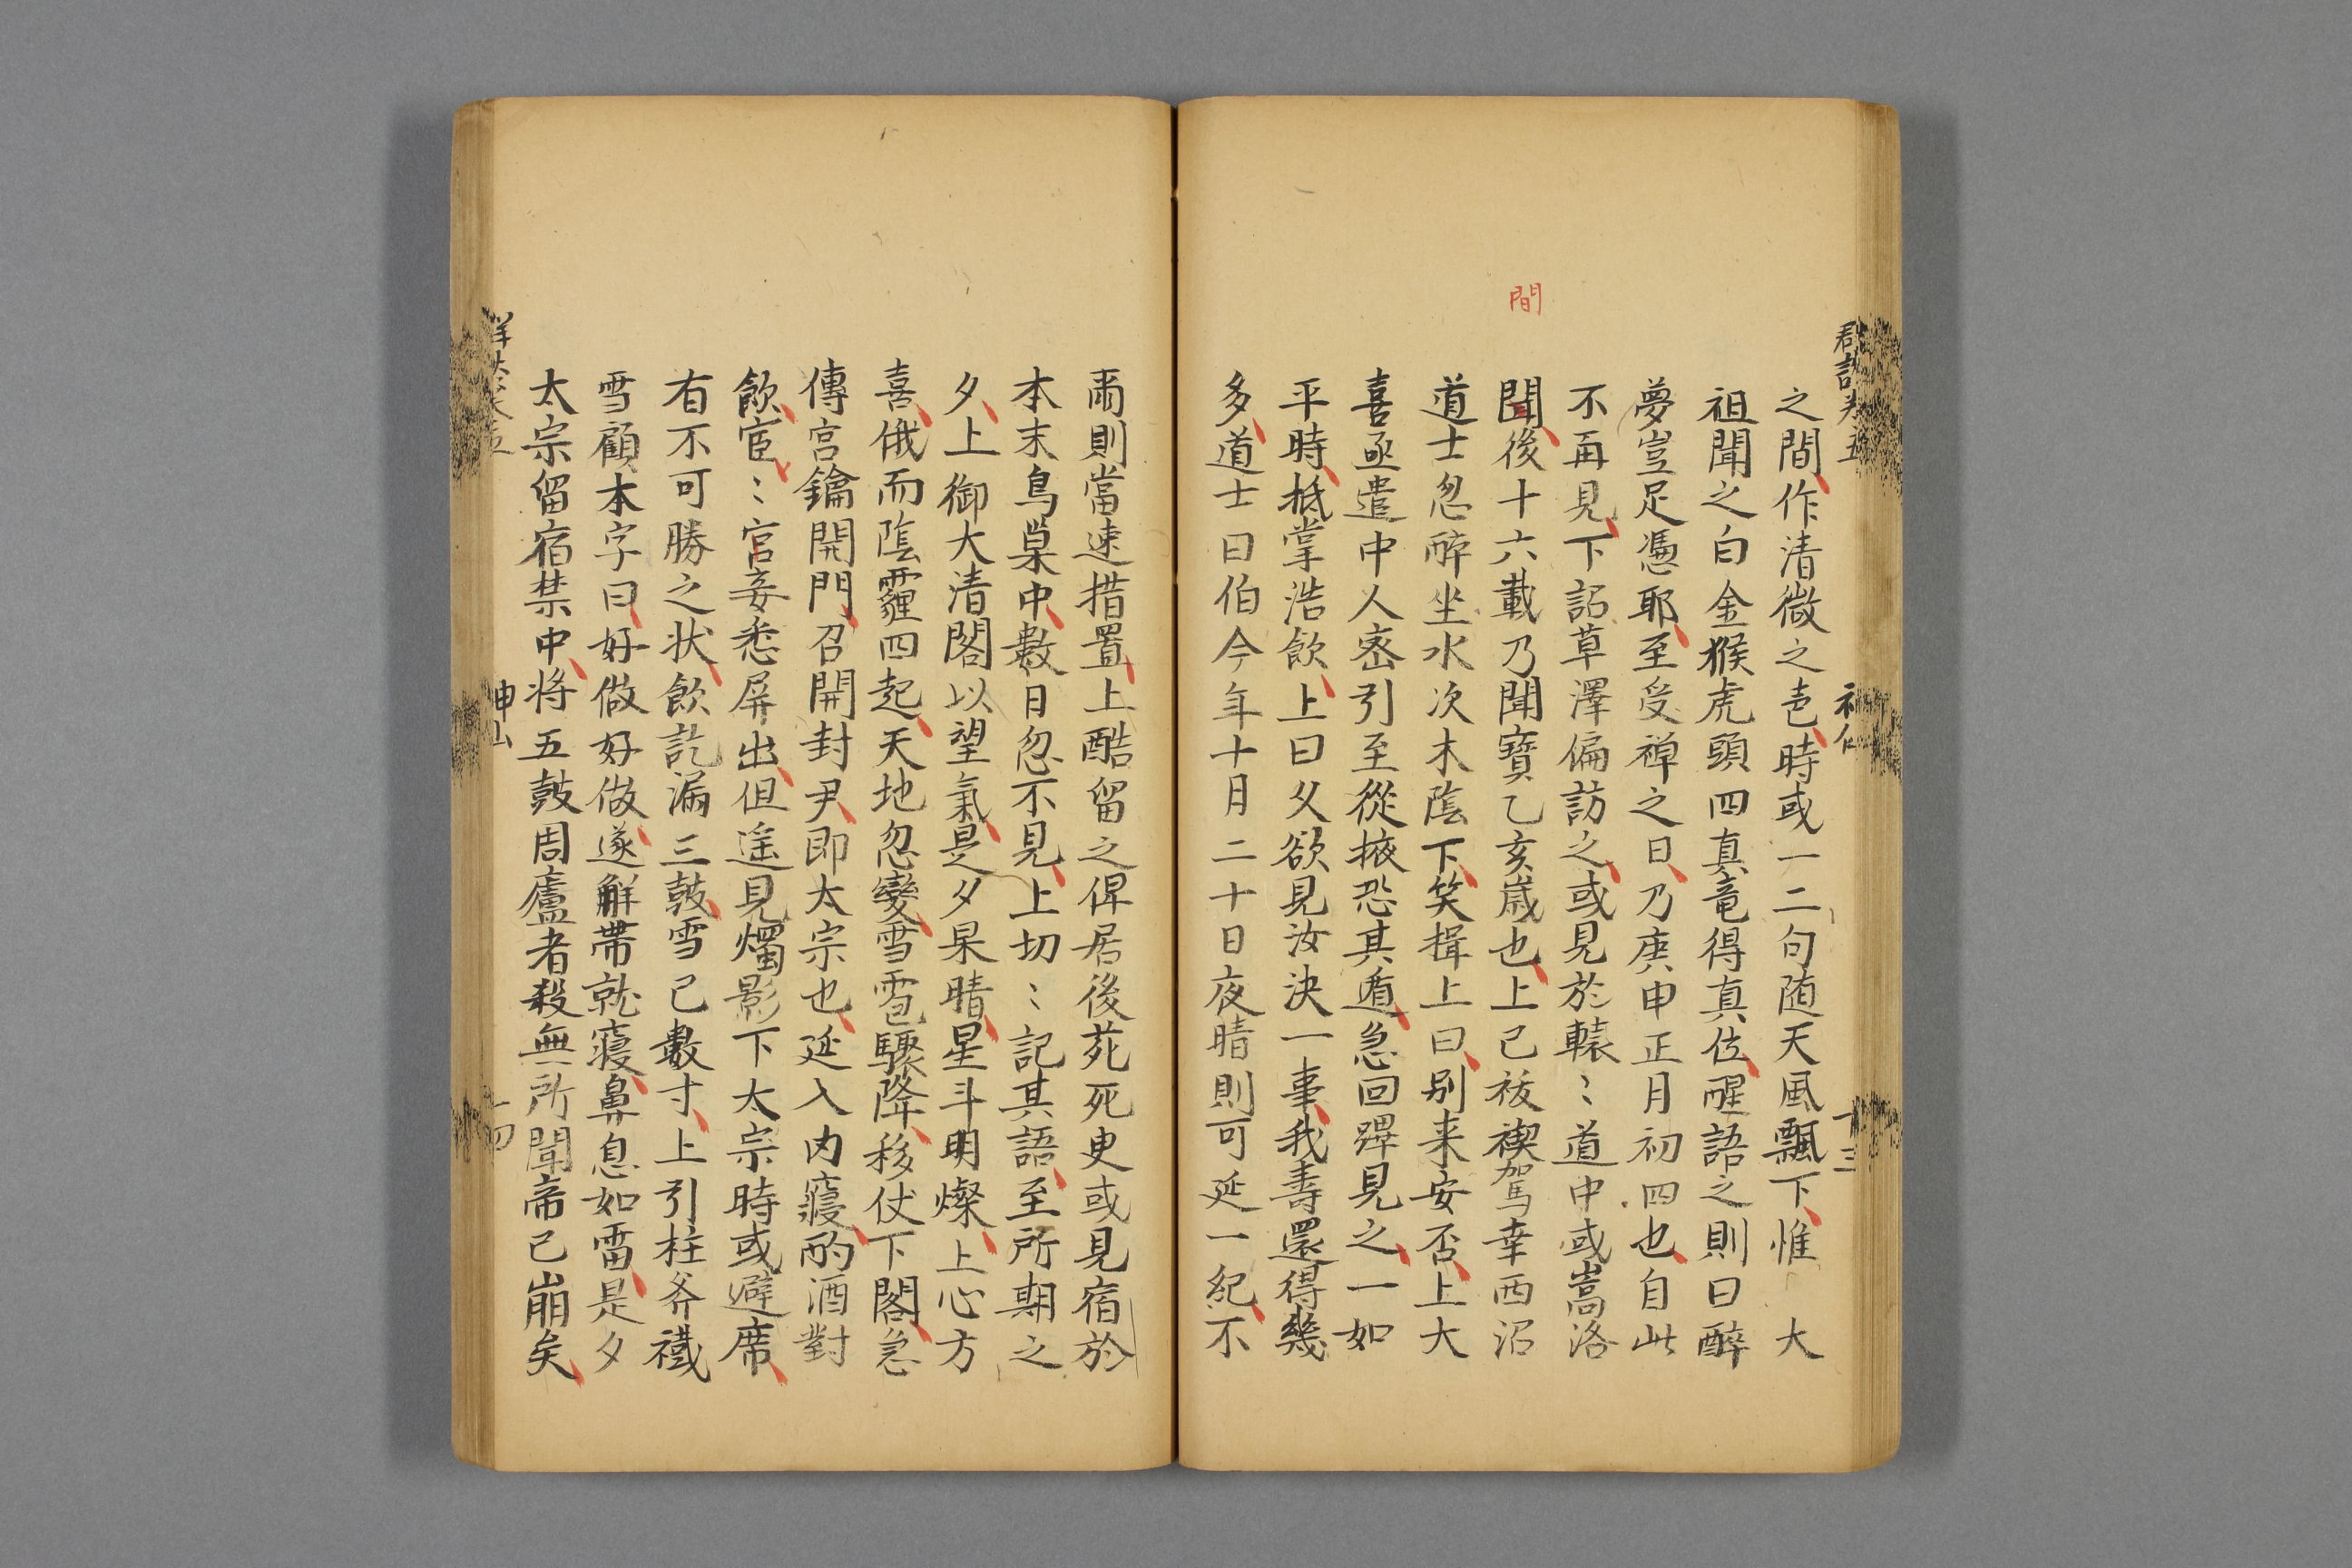 間
之間作清微之声時或一二句随天風飄下惟 大
祖聞之白金猴虎頭四真竜得真位醒語之則曰醉
夢豈足憑耶至受禅之日乃庚申正月初四也自此
不再見下詔草澤偏訪之或見於轅〻道中或嵩洛
聞後十六載乃聞寶乙亥歳也上已祓禊駕幸西沼
道士忽酔坐水次木陰下笑揖上曰別来安否上大
喜亟遣中人宻引至從掖恐其遁急回蹕見之一如
平時抵掌浩飲上曰久欲見汝決一事我壽還得幾
多道士曰伯今年十月二十日夜晴則可延一紀不
爾則當速措置上酷留之俾居後苑死吏或見宿於
本末鳥巣中數日忽不見上切〻記其語至所期之
夕上御大清閣以望氣是夕杲晴星斗明燦上心方
喜俄而陰霾四起天地忽變雪雹驟降移仗下閣急
傳宮鑰開門召開封尹即太宗也延入内寝酌酒對
飲宦〻官妾悉屏出但遥見燭影下太宗時或避席
有不可勝之状飲訖漏三皷雪已數寸上引柱斧䥫
雪顧本字曰好做好做遂解帯就寝鼻息如雷是夕
太宗留宿禁中将五皷周廬者殺無所聞帝已崩矣